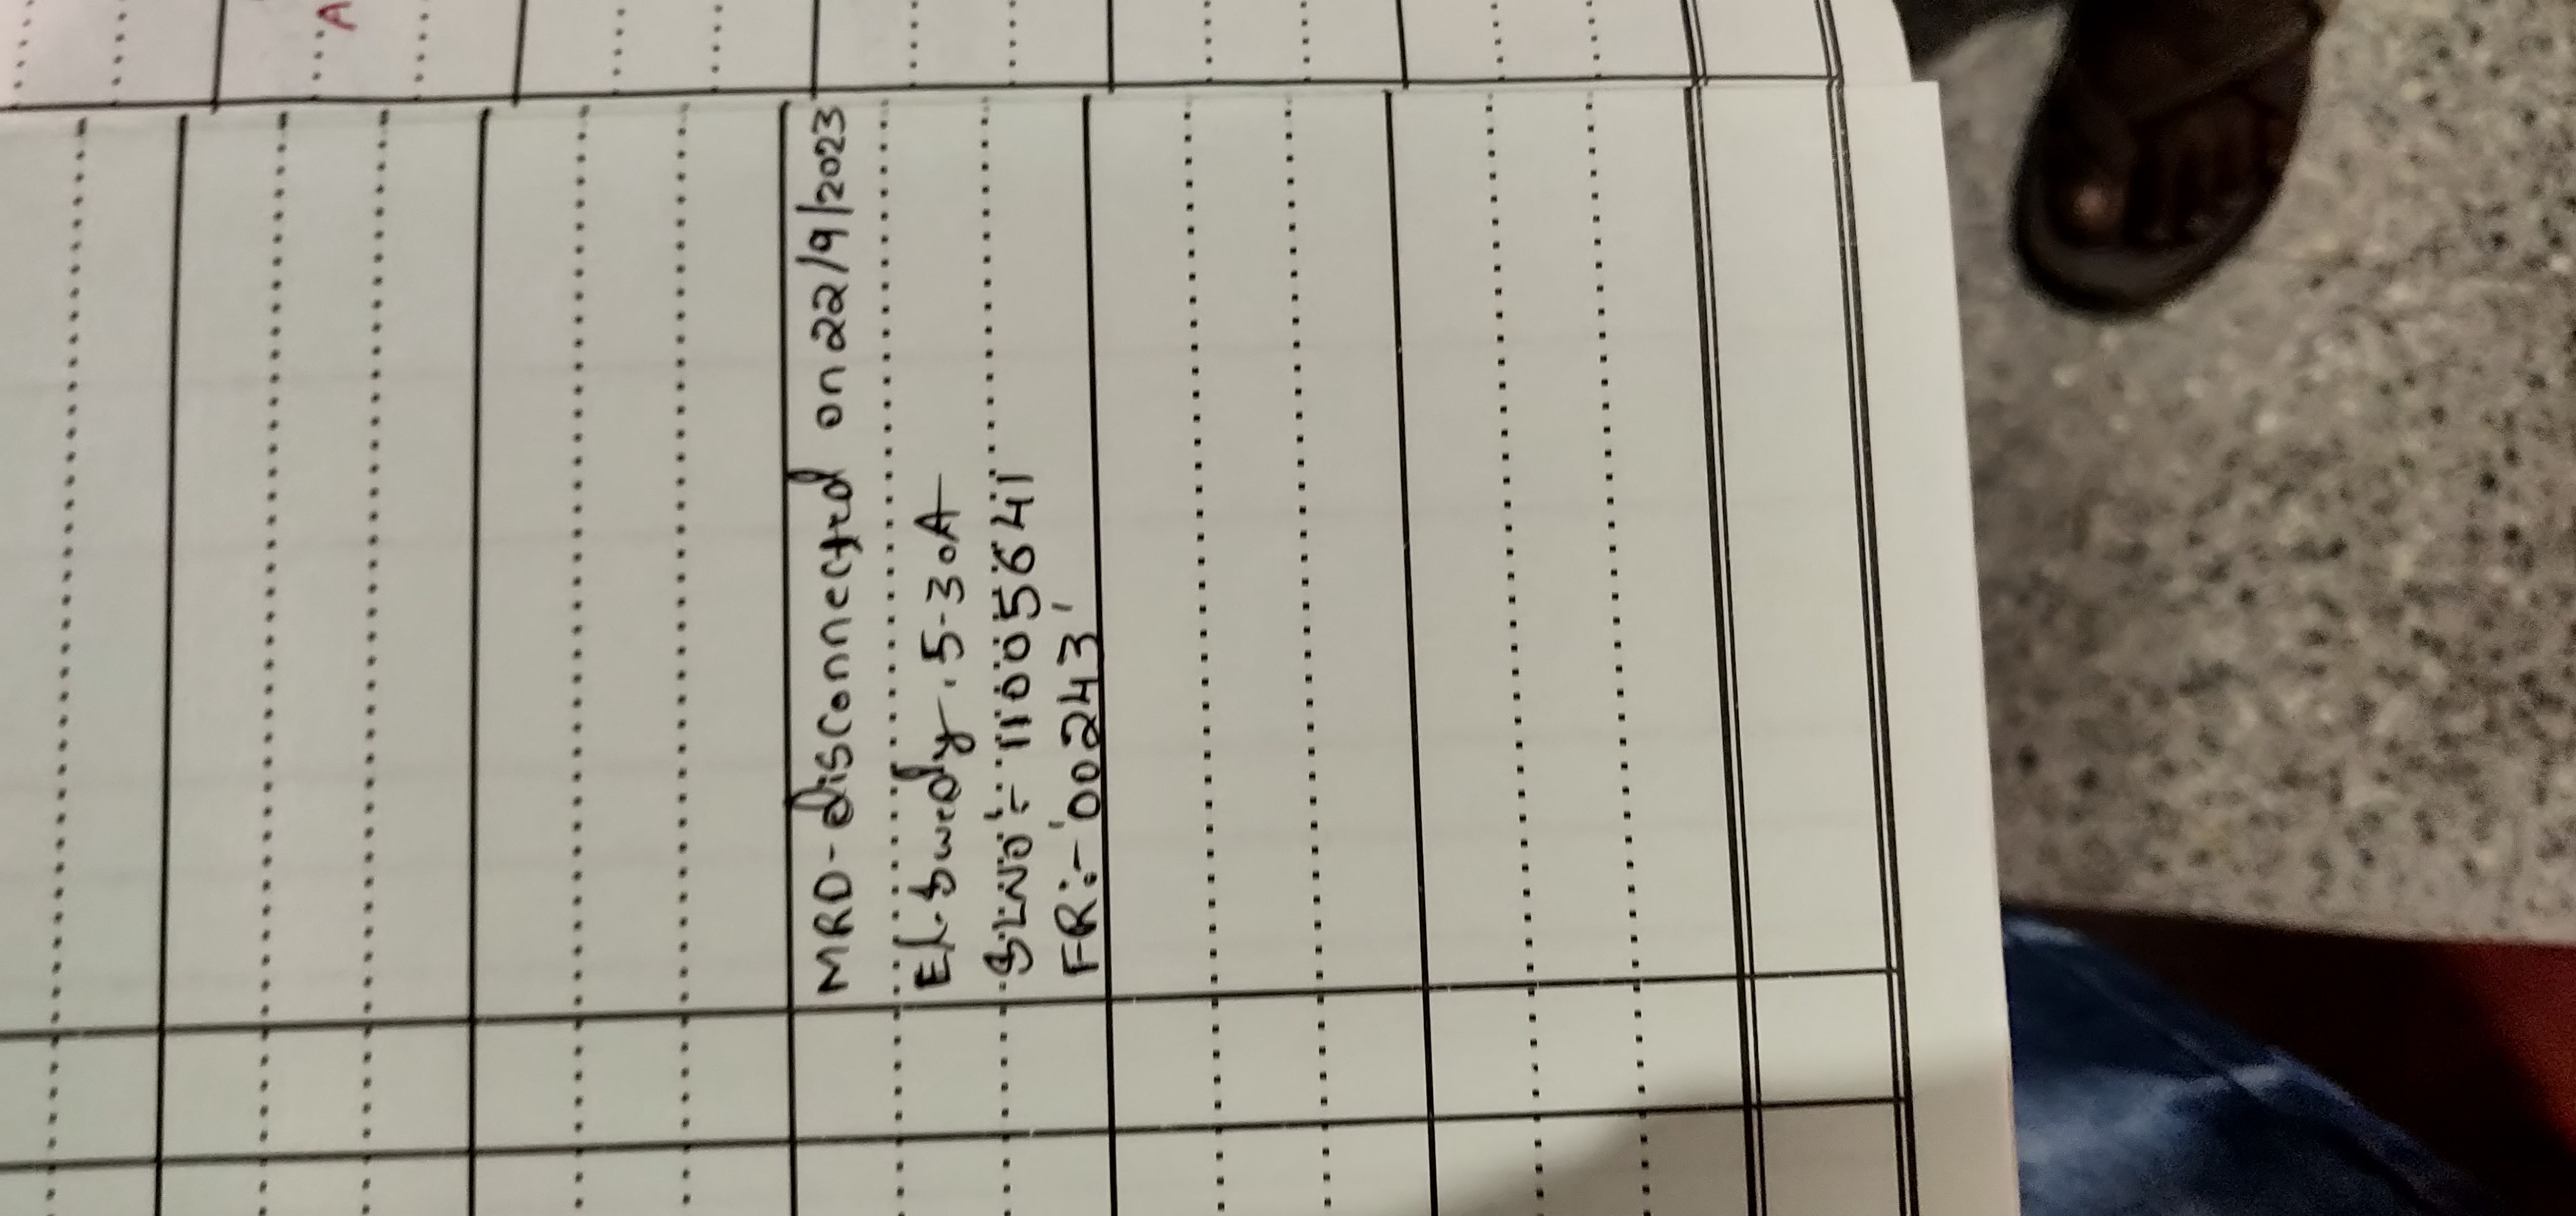 MRD-disconnected on 22/9/2023
El. Swedy. 5-30A
S:LNo:- 11005641
FR:- 00243
A